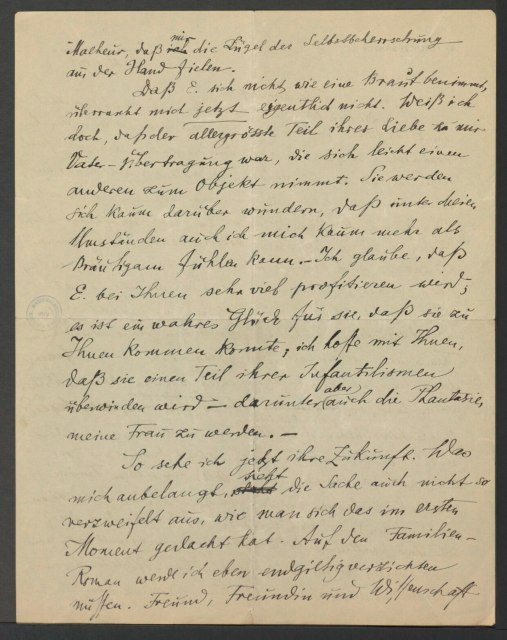 Malheur, daß mir die Zügel der Selbstbeherrschung
aus der Hand fielen.
Daß E. sich nicht wie eine Braut benimmt,
überrascht mich jetzt eigentlich nicht. Weiß ich
doch, daß der allergrösste Teil ihrer Liebe zu mir
Vater-Übertragung war, die sich leicht einen
anderen zum Objekt nimmt. Sie werden
sich kaum darüber wundern, daß unter diesen
Umständen auch ich mich kaum mehr als
Bräutigam fühlen kann. – Ich glaube, daß
E. bei Ihnen sehr viel profitieren wird;
es ist ein wahres Glück für sie, daß sie zu
Ihnen kommen konnte; ich hoffe mit Ihnen,
daß sie einen Teil ihrer Infantilismen
überwinden wird – darunter aber auch die Phantasie,
meine Frau zu werden. –
So sehe ich jetzt ihre Zukunft. Was
mich anbelangt, sieht die Sache auch nicht so
verzweifelt aus, wie man sich das im ersten
Moment gedacht hat. Auf den Familien-
Roman werde ich eben endgiltig verzichten
müssen. Freund, Freundin und Wissenschaft